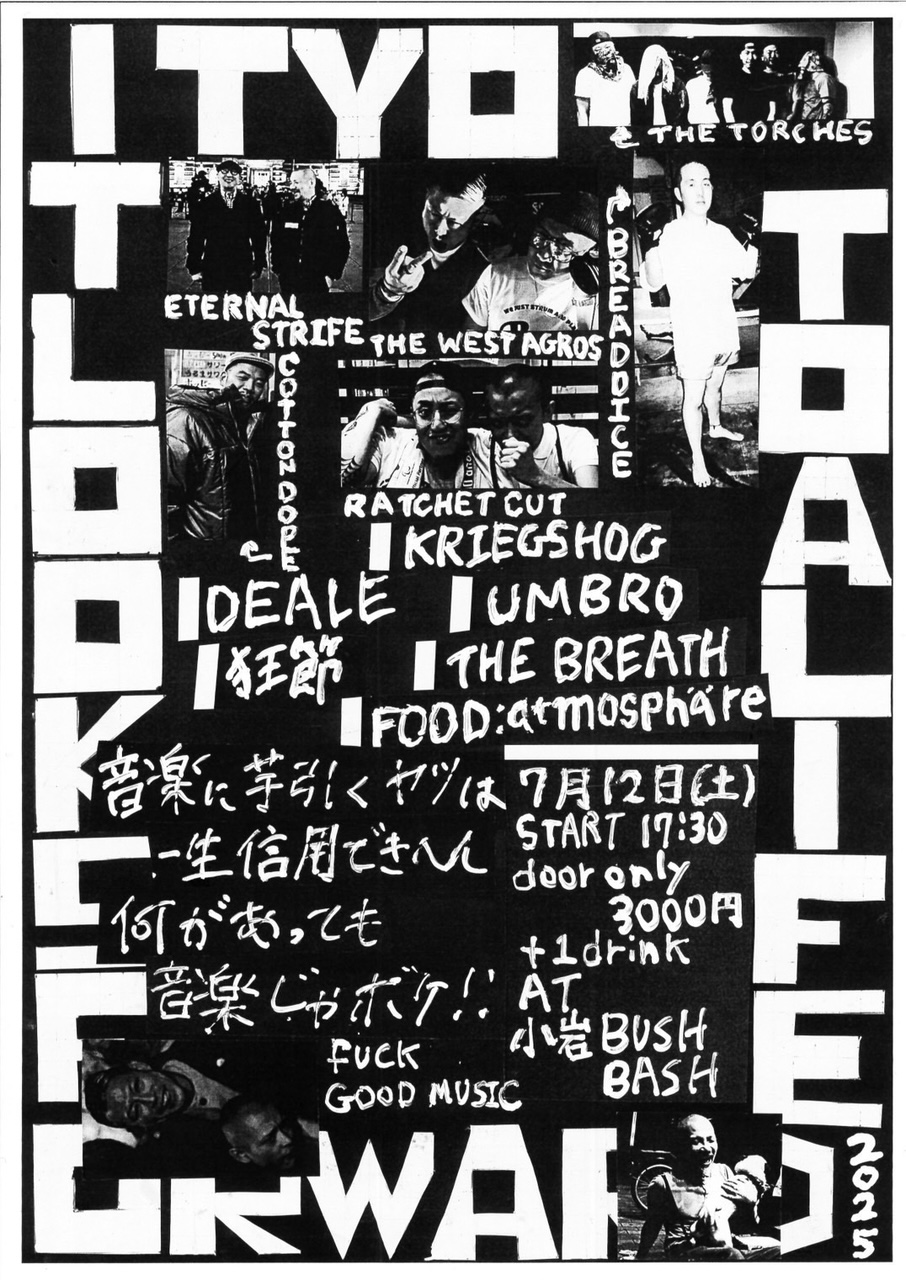 ITYO
T
LOOK
FORWARD
TO A LIFE
THE TORCHES
ETERNAL
STRIFE
THE WEST AGROS
BREADDICE
COTTON DOPE
RATCHET CUT
KRIEGSHOG
DEALE
UMBRO
狂節
THE BREATH
FOOD:atmosphäre
音楽に芋引くヤツは
一生信用できへん
何があっても
音楽じゃボケ!!
FUCK
GOOD MUSIC
7月12日(土)
START 17:30
door only
3000円
+1drink
AT
小岩BUSH
BASH
2025